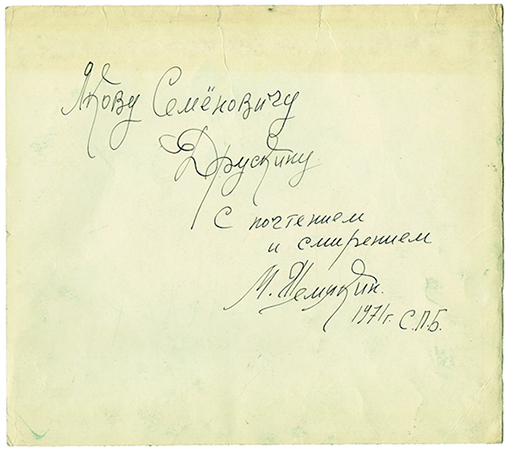 Якову Семёновичу
Друскину
с почтением
и смирением
М. Шемякин.
1971г. С.П.Б.